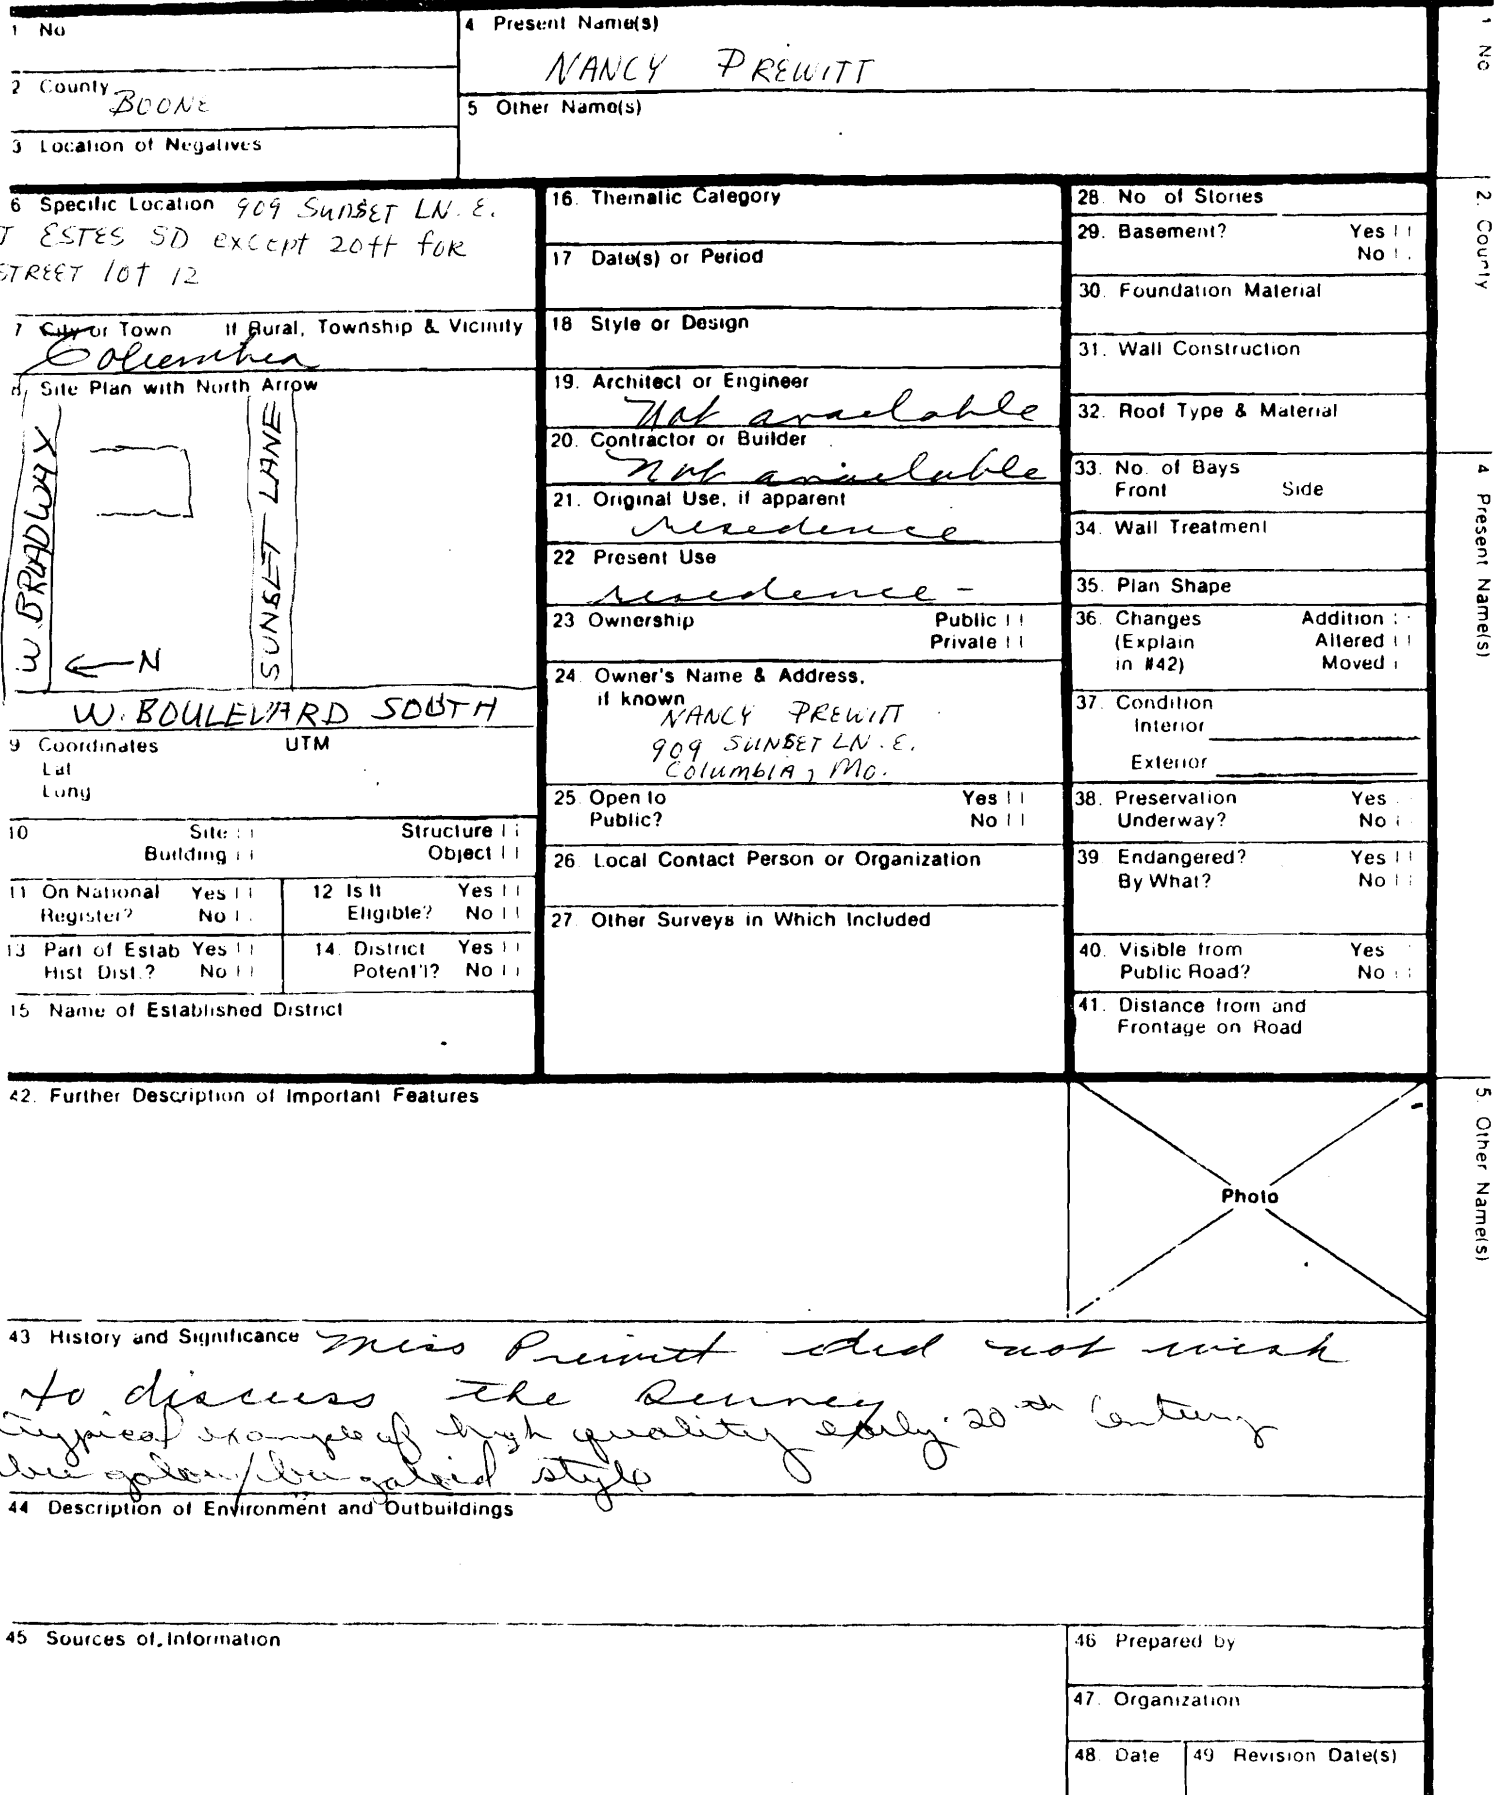 1 No
4 Present Name(s)
NANCY PREWITT
2 County
BOONE
5 Other Name(s)
3 Location of Negatives
6 Specific Location 909 SUNSET LN. E.
ESTES SD except 20 ft for
STREET lot 12
7 City or Town If Rural, Township & Vicinity
Columbia
8. Site Plan with North Arrow
W. BROADWAY
SUNSET LANE
← N
W. BOULEVARD SOUTH
9 Coordinates UTM
Lat
Long
10 Site Structure
Building Object
11 On National Register? Yes No
12 Is It Eligible? Yes No
13 Part of Estab Hist Dist.? Yes No
14. District Potent'l? Yes No
15 Name of Established District
16. Thematic Category
17 Date(s) or Period
18 Style or Design
19. Architect or Engineer
Not available
20. Contractor or Builder
Not available
21. Original Use, if apparent
residence
22 Present Use
residence -
23 Ownership Public
Private
24. Owner's Name & Address,
if known
NANCY PREWITT
909 SUNSET LN. E.
Columbia, Mo.
25. Open to Yes
Public? No
26. Local Contact Person or Organization
27. Other Surveys in Which Included
28. No of Stories
29. Basement? Yes
No
30. Foundation Material
31. Wall Construction
32. Roof Type & Material
33. No. of Bays
Front Side
34. Wall Treatment
35. Plan Shape
36. Changes Addition
(Explain Altered
in #42) Moved
37. Condition
Interior
Exterior
38. Preservation Yes
Underway? No
39 Endangered? Yes
By What? No
40. Visible from Yes
Public Road? No
41. Distance from and
Frontage on Road
42. Further Description of Important Features
Photo
43 History and Significance Miss Prewitt did not wish
to discuss the survey
Typical example of high quality early 20th Century
bungalow/bungaloid style
44 Description of Environment and Outbuildings
45 Sources of Information
46 Prepared by
47. Organization
48. Date 49 Revision Date(s)
1 No
2. County
4 Present Name(s)
5. Other Name(s)